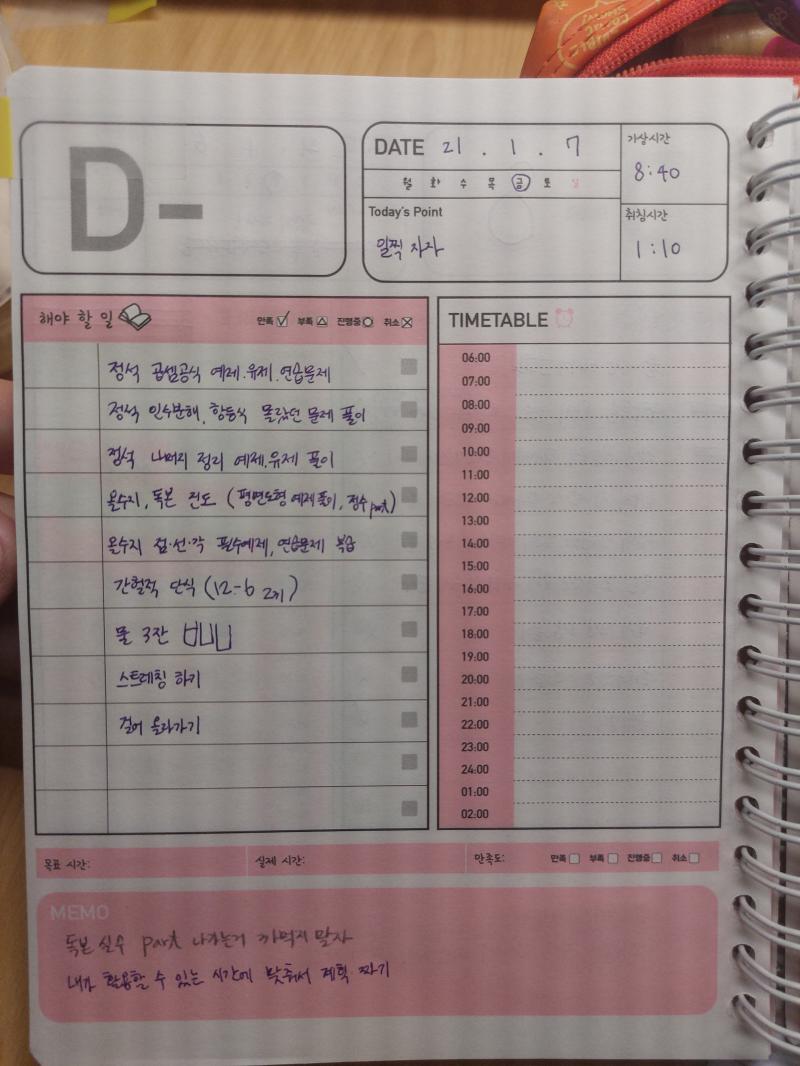 D-
DATE 21 . 1 . 7
월 화 수 목 금 토 일
기상시간
8:40
Today's Point
일찍 자자
취침시간
1:10
해야 할 일
만족 부족 진행중 취소
정석 곱셈공식 예제.유제.연습문제
정석 인수분해, 항등식 몰랐던 문제 풀이
정석 나머지 정리 예제.유제 풀이
올수지, 독본 진도 (평면도형 예제풀이, 정수 part)
올수지 점·선·각 필수예제, 연습문제 복습
간헐적 단식 (12-6 2끼)
물 3잔
스트레칭 하기
걸어 올라가기
TIMETABLE
06:00
07:00
08:00
09:00
10:00
11:00
12:00
13:00
14:00
15:00
16:00
17:00
18:00
19:00
20:00
21:00
22:00
23:00
24:00
01:00
02:00
목표 시간: 실제 시간: 만족도: 만족 부족 진행중 취소
MEMO
독본 실수 part 나가는거 까먹지 말자
내가 활용할 수 있는 시간에 맞춰서 계획 짜기